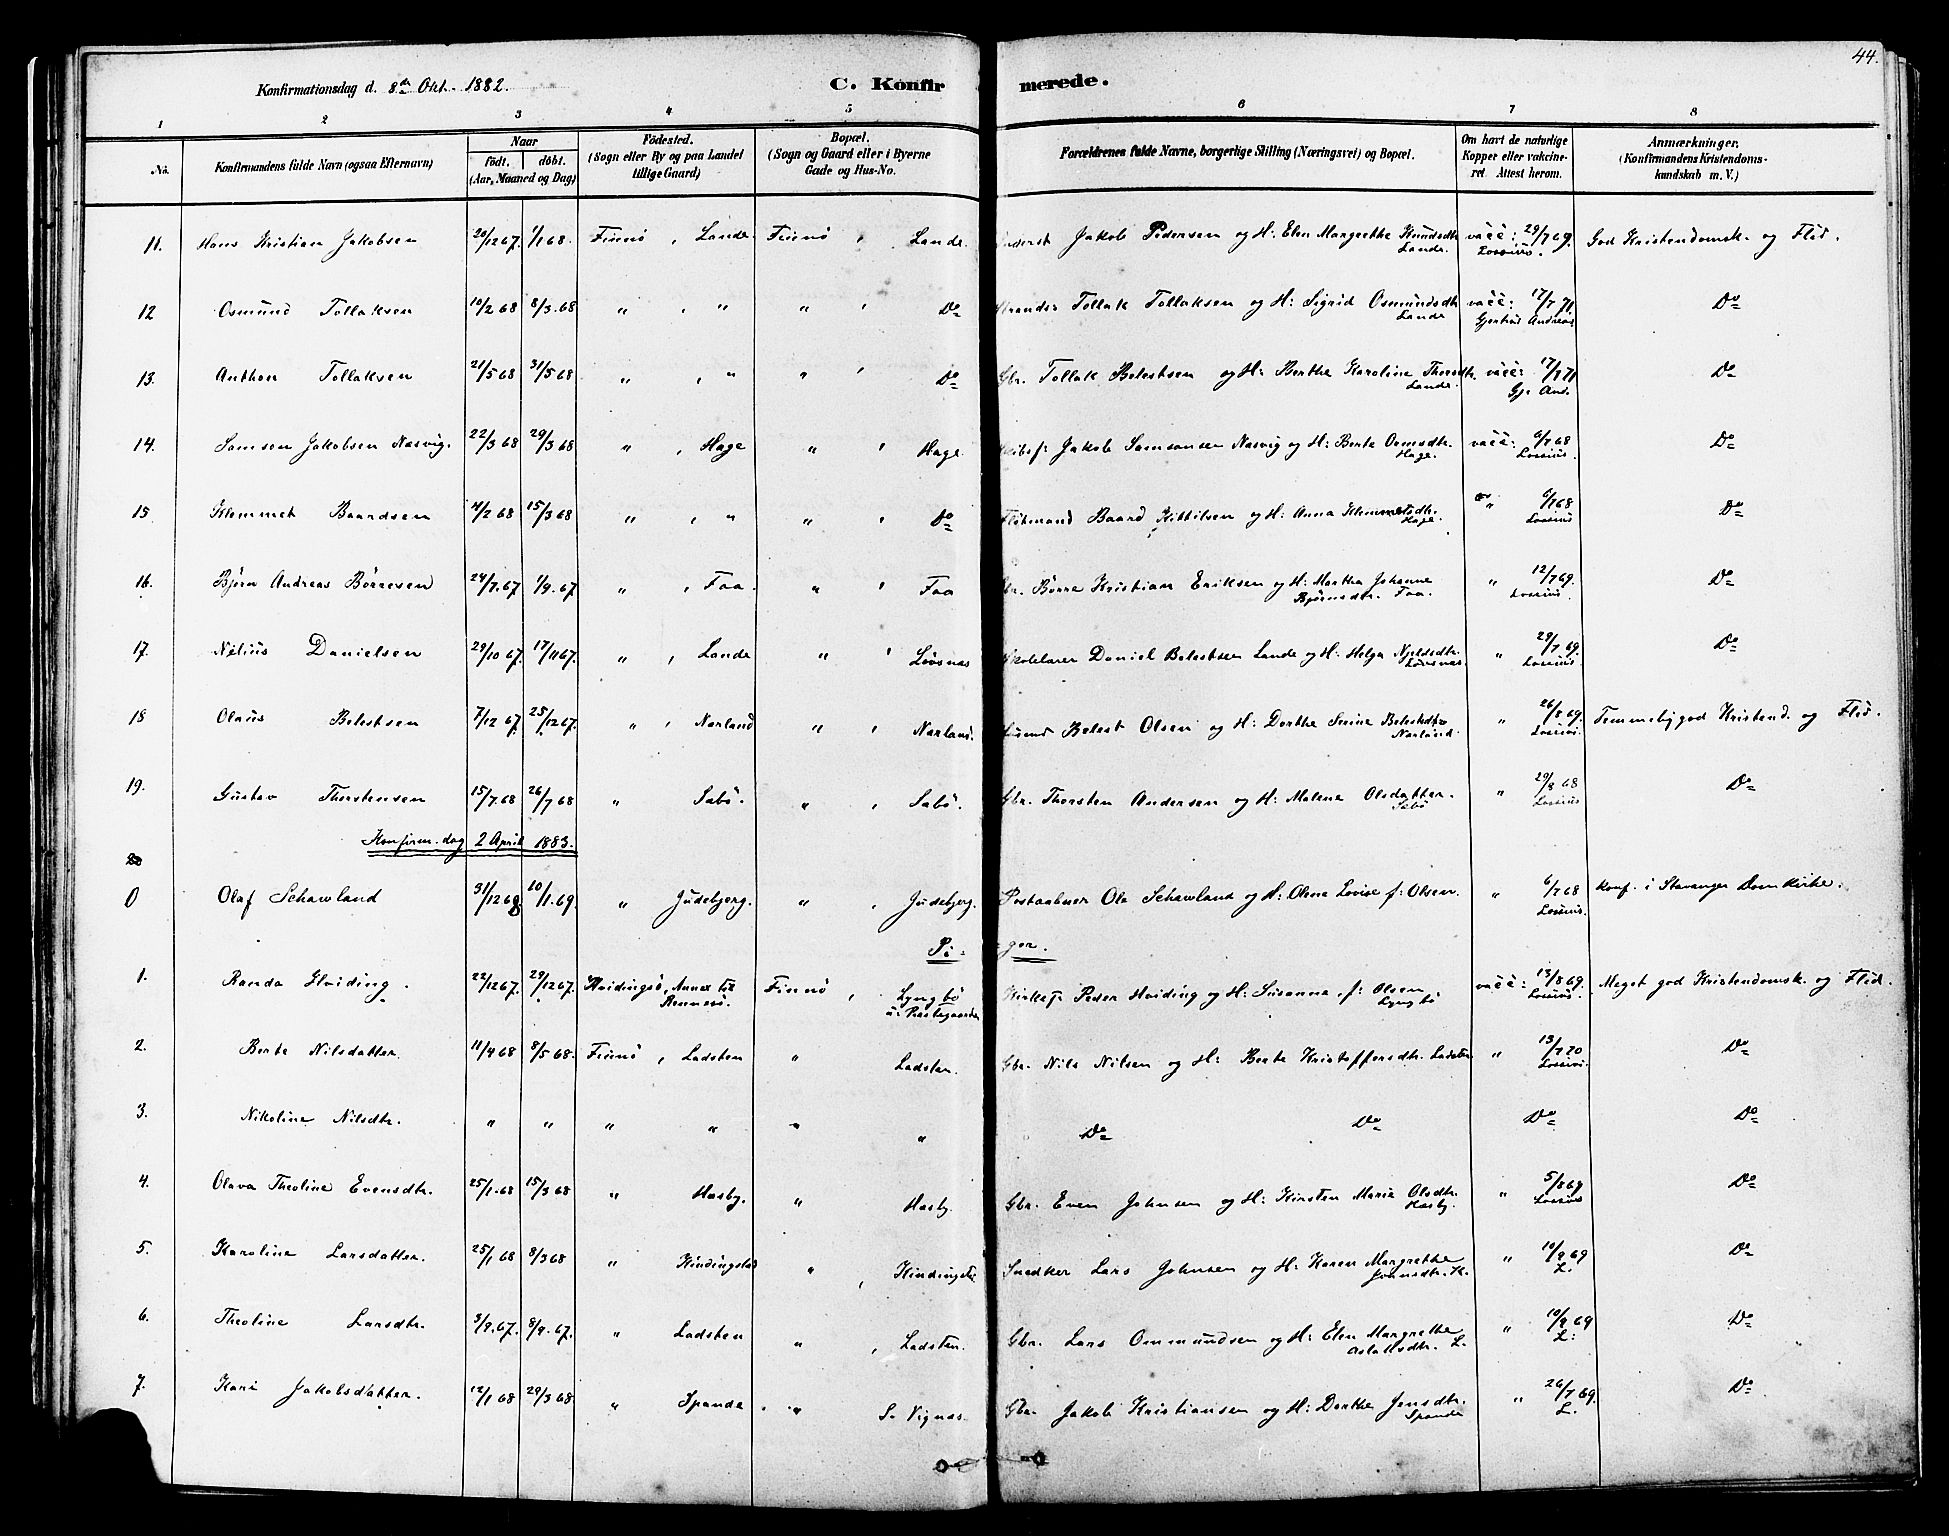 44.
Konfirmationsdag d. 8de Okt. 1882.
C. Konfirmerede.
1 2 3 4 5 6 7 8
No. Konfirmandens fulde Navn (ogsaa Efternavn) Naar födt. döbt. (Aar, Maaned og Dag) Födested. (Sogn eller By og paa Landet tillige Gaard) Bopæl. (Sogn og Gaard eller i Byerne Gade og Hus-No. Forældrenes fulde Navne, borgerlige Stilling (Næringsvei) og Bopæl. Om havt de naturlige Kopper eller vakcineret. Attest herom. Anmærkninger. (Konfirmandens Kristendomskundskab m. V.)
11. Hans Kristian Jakobsen 20/12 67. 1/1 68. Finnö, Lande Finnö, Lande. Jakob Pedersen og H: Elen Margrethe Knudsdtr Lande. vacc: 29/7 69. Lossius. God Kristendomsk. og Flid.
12 Osmund Tollaksen 10/2 68 8/3 68 " , " " , Do Tollak Tollaksen og H: Sigrid Osmundsdtr Lande vacc: 17/7 71. Gjertrud Andreas Do
13. Anthon Tollaksen 21/5 68 31/5 68 " , " " , Do Gbr. Tollak Belestsen og H: Berthe Karoline Thorsdtr. Lande. vacc: 17/7 71 Gj. And. Do
14. Samson Jakobsen Nasvig. 22/3 68 29/3 68 " , Hage " , Hage. Jakob Samsonsen Nasvig og H: Berte Ormsdtr. Hage. vacc: 6/7 68 Lossius. Do
15 Klemmet Baardsen 4/2 68 15/3 68 " , " " , Do Baard Kittilsen og H: Anna Klemmetsdtr. Hage. " 6/7 68 Lossius Do
16. Björn Andreas Börresen 24/7. 67 1/9. 67 " , Faa. " , Faa Gbr. Börre Kristian Eriksen og H: Martha Johanne Björnsdtr. Faa. " 12/7 69. Lossius. Do
17. Nilius Danielsen 29/10 67. 17/11 67. " , Lande " , Lövsnas Skolelærer Daniel Belestsen Lande og H: Helga Njeldsdtr. Lövsnas. " 29/7 69. Lossius. Do
18 Olaus Belestsen 7/12 67. 25/12 67. " , Narland " , Narland. Belest Olsen og H: Dorthe Serine Belestsdtr Narland. " 26/8 69. Lossius. Temmelig god Kristend. og Flid.
19. Gustav Thorstensen 15/7. 68 26/7 68 " Sabö. " , Sabö. Gbr. Thorsten Andersen og H: Malene Olsdatter. Sabö " 29/8 68 Lossius Do
Konfirm.dag 2 April 1883.
0 Olaf Schawland 31/12 68 10/1. 69. " Judebjerg. " , Judebjerg. Postaabner Ola Schawland og H: Olene Lovise f: Olsen. " 6/7 68 Lossius. Konf. i Stavanger Domkirke.
Pi-ger.
1. Randa Hviding. 22/12 67. 29/12 67. Hvidingsö, Annex til Rennesö. Finnö, Lyngbö u: Præstegaarden Kirkesr Peder Hviding og H: Susanne, f: Olsen Lyngbö vacc: 13/8 69. Lossius. Meget god Kristendomsk. og Flid.
2. Berte Nilsdatter. 11/4 68 8/5 68. Finnö, Ladsten " Ladsten. Gbr. Nils Nilsen og H: Berte Kristoffersdtr. Ladsten " 13/7 70 Lossius. Do
3. Nikoline Nilsdtr. " " " " " " Do Do Do Do
4. Olava Theoline Evensdtr. 25/1. 68 15/3 68 " Hasby. " Hasby. Gbr. Even Johnsen og H: Kirsten Marie Olsdtr. Hasby. " 5/8 69 Lossius Do
5. Karoline Larsdatter. 25/1 68 8/3 68 " Kindingstad " , Kindingsta Snedker Lars Johnsen og H: Karen Margrethe Johnsdtr. K. " 10/9 69 L. Do
6. Theoline Larsdtr. 3/9. 67. 8/9. 67. " Ladsten " , Ladsten. Gbr. Lars Ommundsen og H: Elen Margrethe Aslaksdtr. L. " 10/9 69 L: Do
7. Kari Jakobsdatter. 12/1 68 29/3 68 " Spande. " S. Vignas. Gbr. Jakob Kristiansen og H: Dorthe Jensdtr. Spande " 26/7 69. L. Do